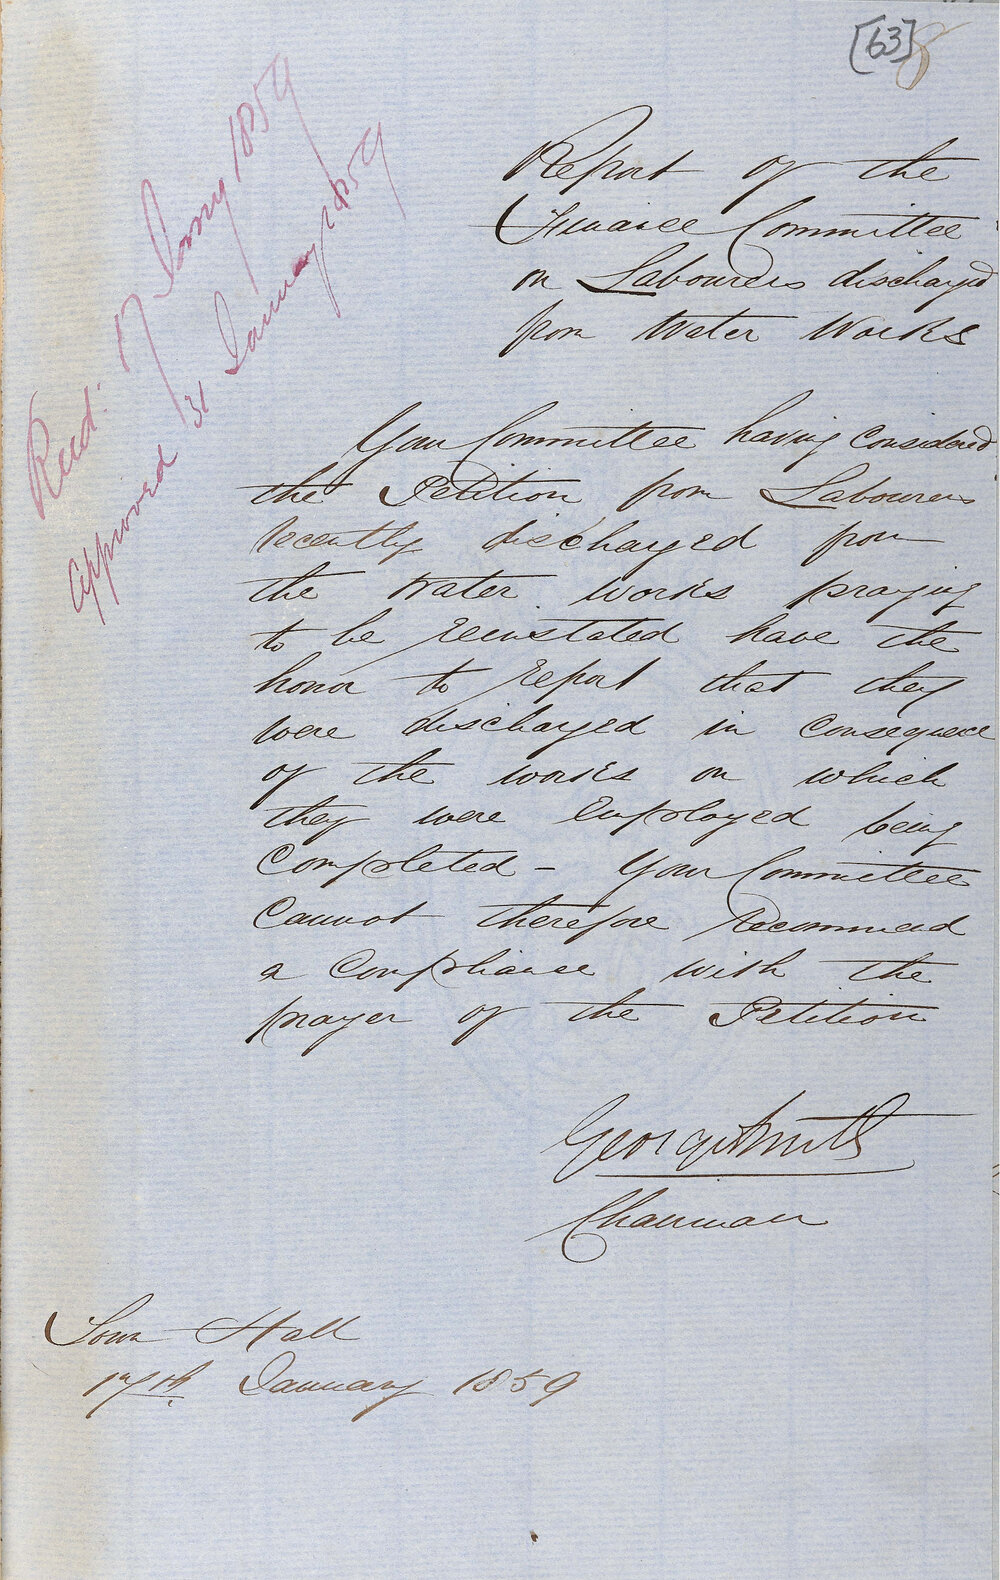 [63] 8
Recd. 17 Jany 1859
Approved 31 January 1859
Report of the
Finance Committee
on Labourers discharged
from Water Works
Your Committee having Considered
the Petition from Labourers
recently discharged from
the Water works praying
to be reinstated have the
honor to report that they
were discharged in Consequence
of the works on which
they were Employed being
Completed - Your Committee
Cannot therefore Recommend
a Compliance with the
prayer of the Petition
George Smith
Chairman
Town Hall
17th. January 1859